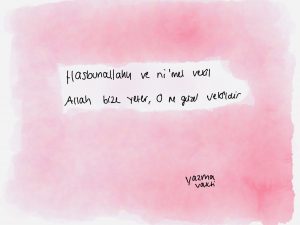 Hasbunallahu ve ni'mel vekil
Allah bize yeter, O ne güzel vekildir
yazma
vakti